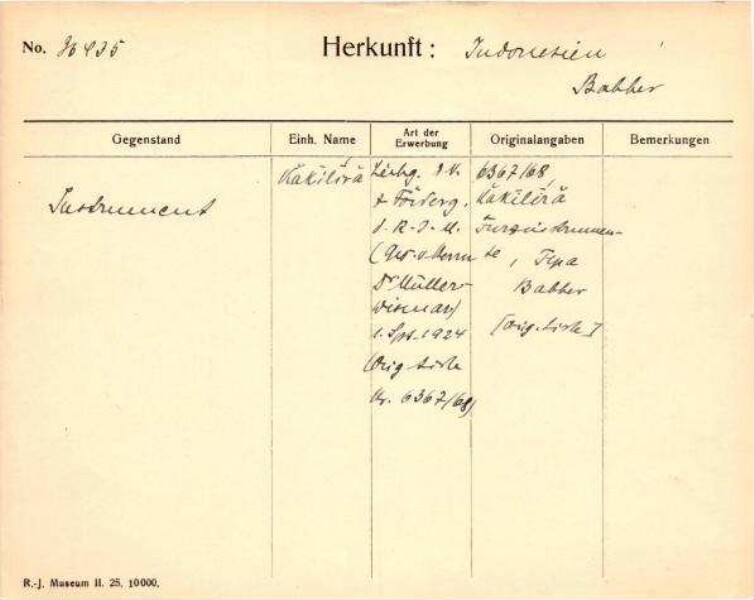 No. 36435 Herkunft: Indonesien
Babber
Gegenstand Einh. Name Art der Erwerbung Originalangaben Bemerkungen
Instrument
Kakilirä
d. V.
z. Förderg.
d. R-J-M.
(Ges. v. Herrn
Dr Müller-
Wismar)
1. Spt. 1924
(Orig. Liste
Nr. 6367/68)
6367/68,
Kakilirä
Tanzinstrumen-
te, Tepa
Babber
[Orig. Liste]
R.-J. Museum II. 25. 10000.